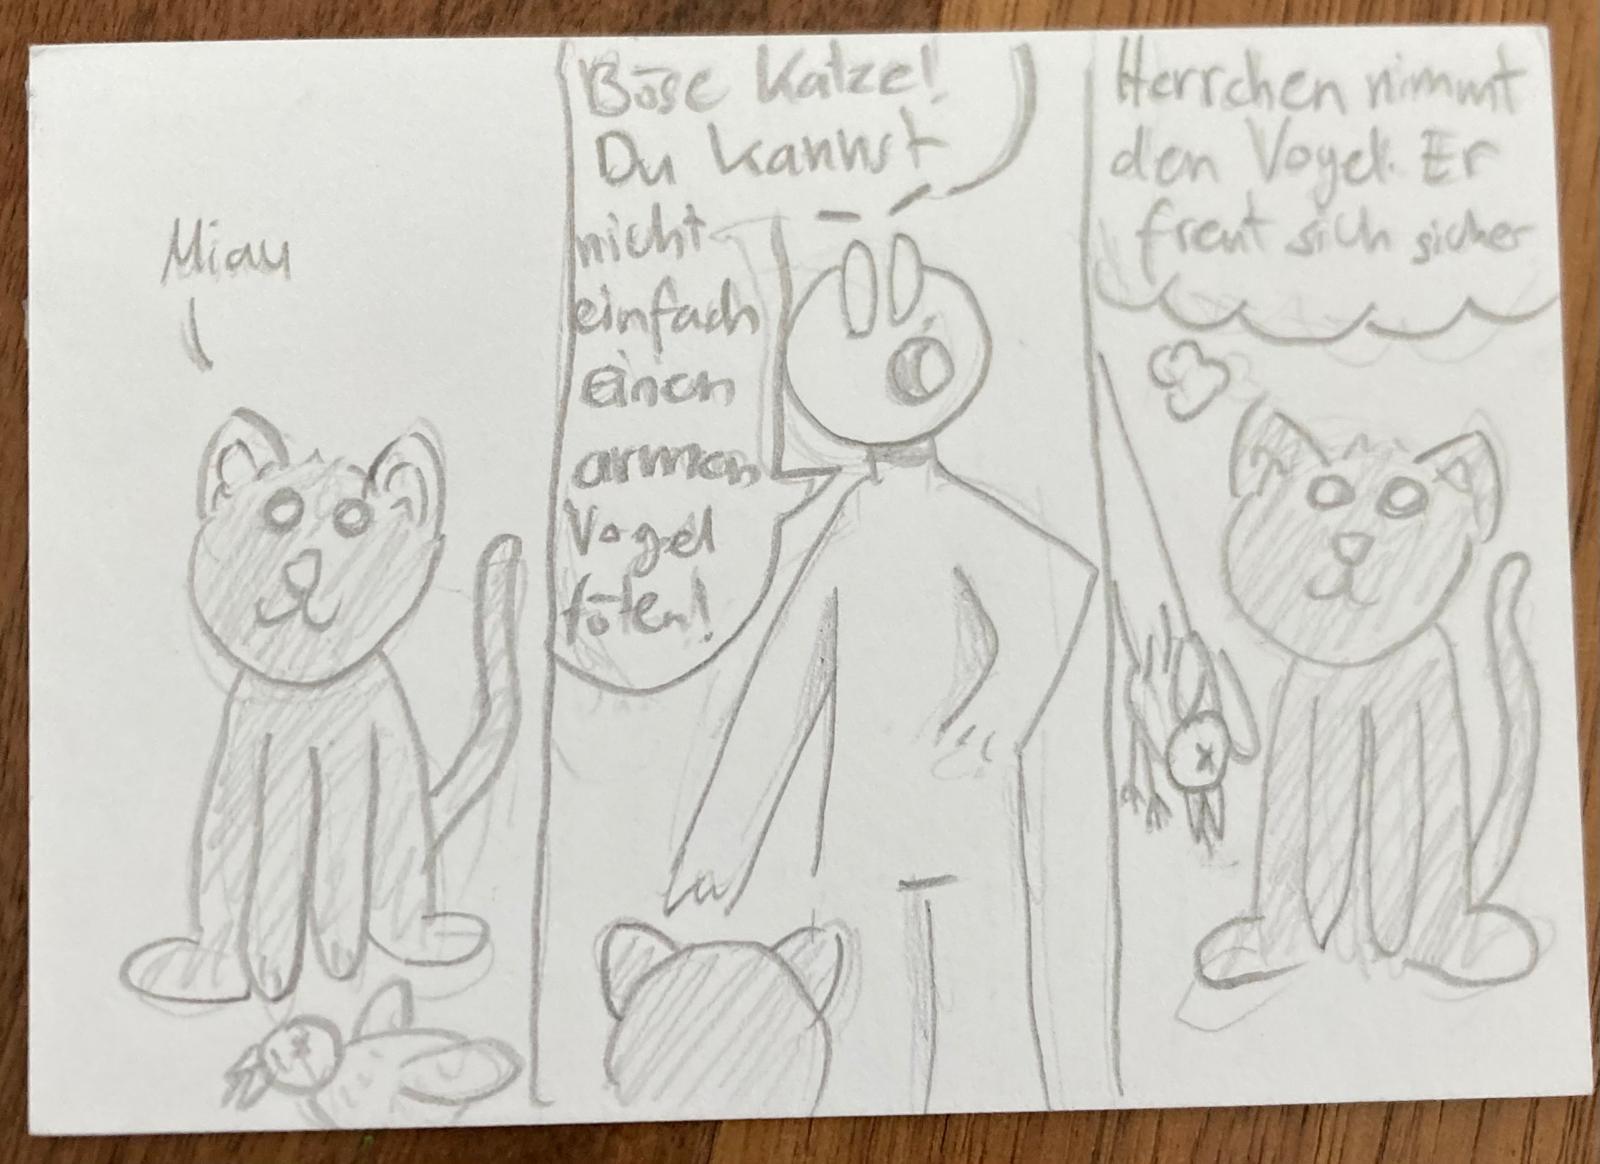 Miau
Böse Katze!
Du kannst
nicht
einfach
einen
armen
Vogel
töten!
Herrchen nimmt
den Vogel. Er
freut sich sicher